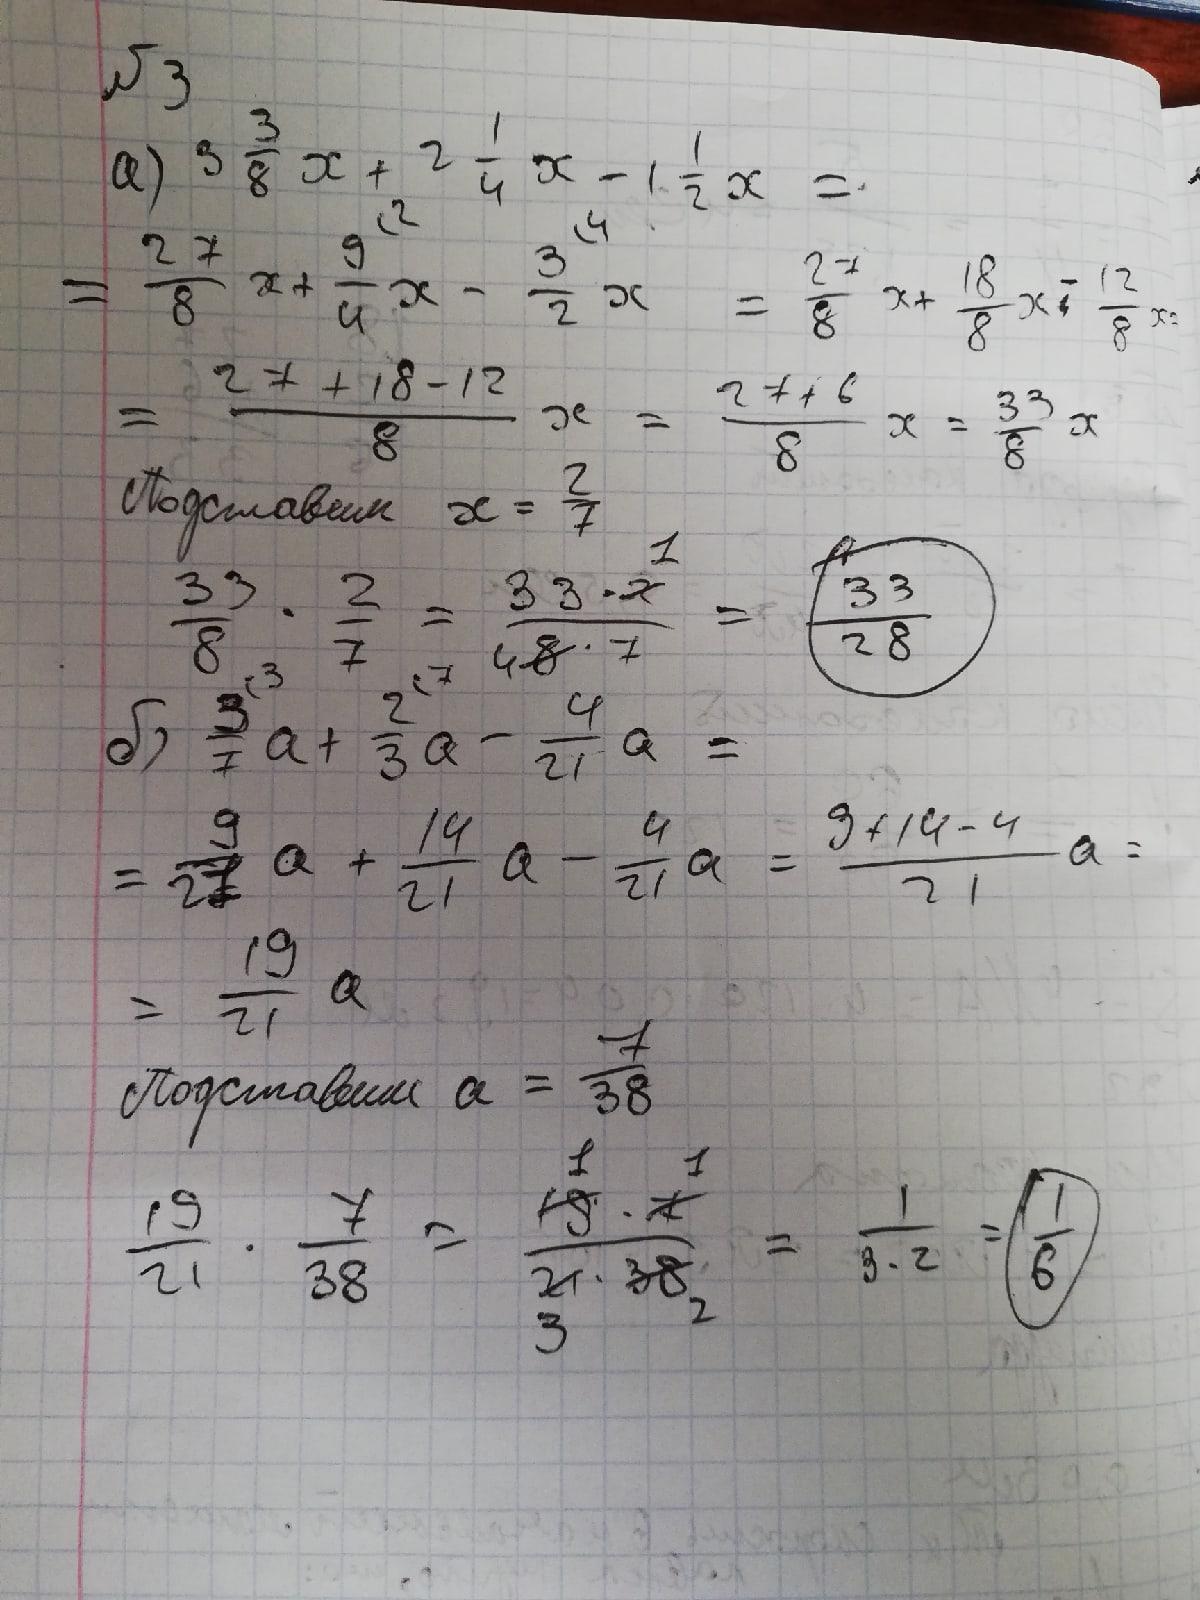 №3
а) 3 3/8 x + 2 1/4 x - 1 1/2 x =
= 27/8 x + 9/4 (2 x - 3/2 (4 x = 27/8 x + 18/8 x - 12/8 x =
= (27+18-12)/8 x = (27+6)/8 x = 33/8 x
Подставим x = 2/7
33/8 · 2/7 = (33·2 1)/(4 8·7) = 33/28
б) 3/7 (3 a + 2/3 (7 a - 4/21 a =
= 9/21 a + 14/21 a - 4/21 a = (9+14-4)/21 a =
= 19/21 a
Подставим a = 7/38
19/21 · 7/38 = (19 1 · 7 1)/(21 3 · 38 2) = 1/(3·2) = 1/6